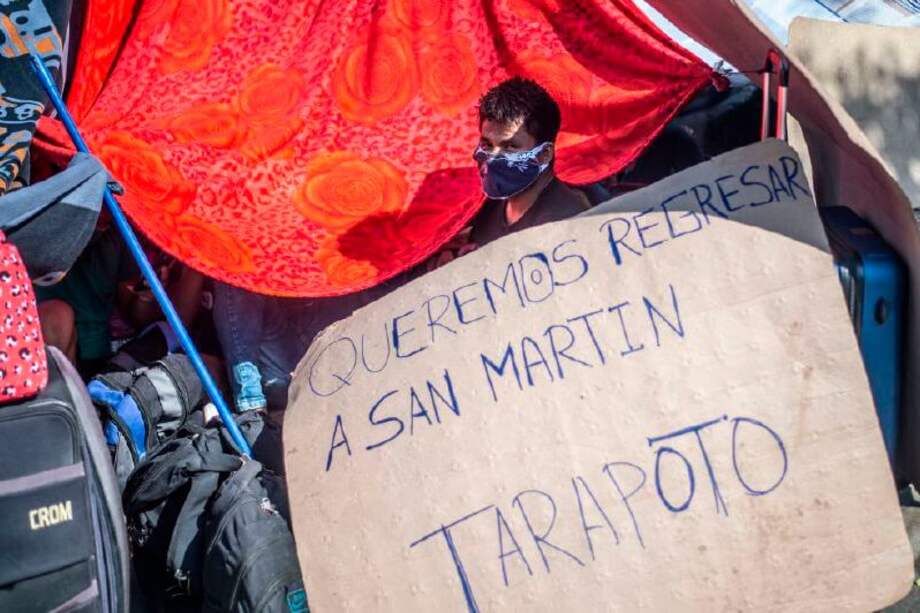 QUEREMOS REGRESAR
A SAN MARTIN
TARAPOTO
CROM